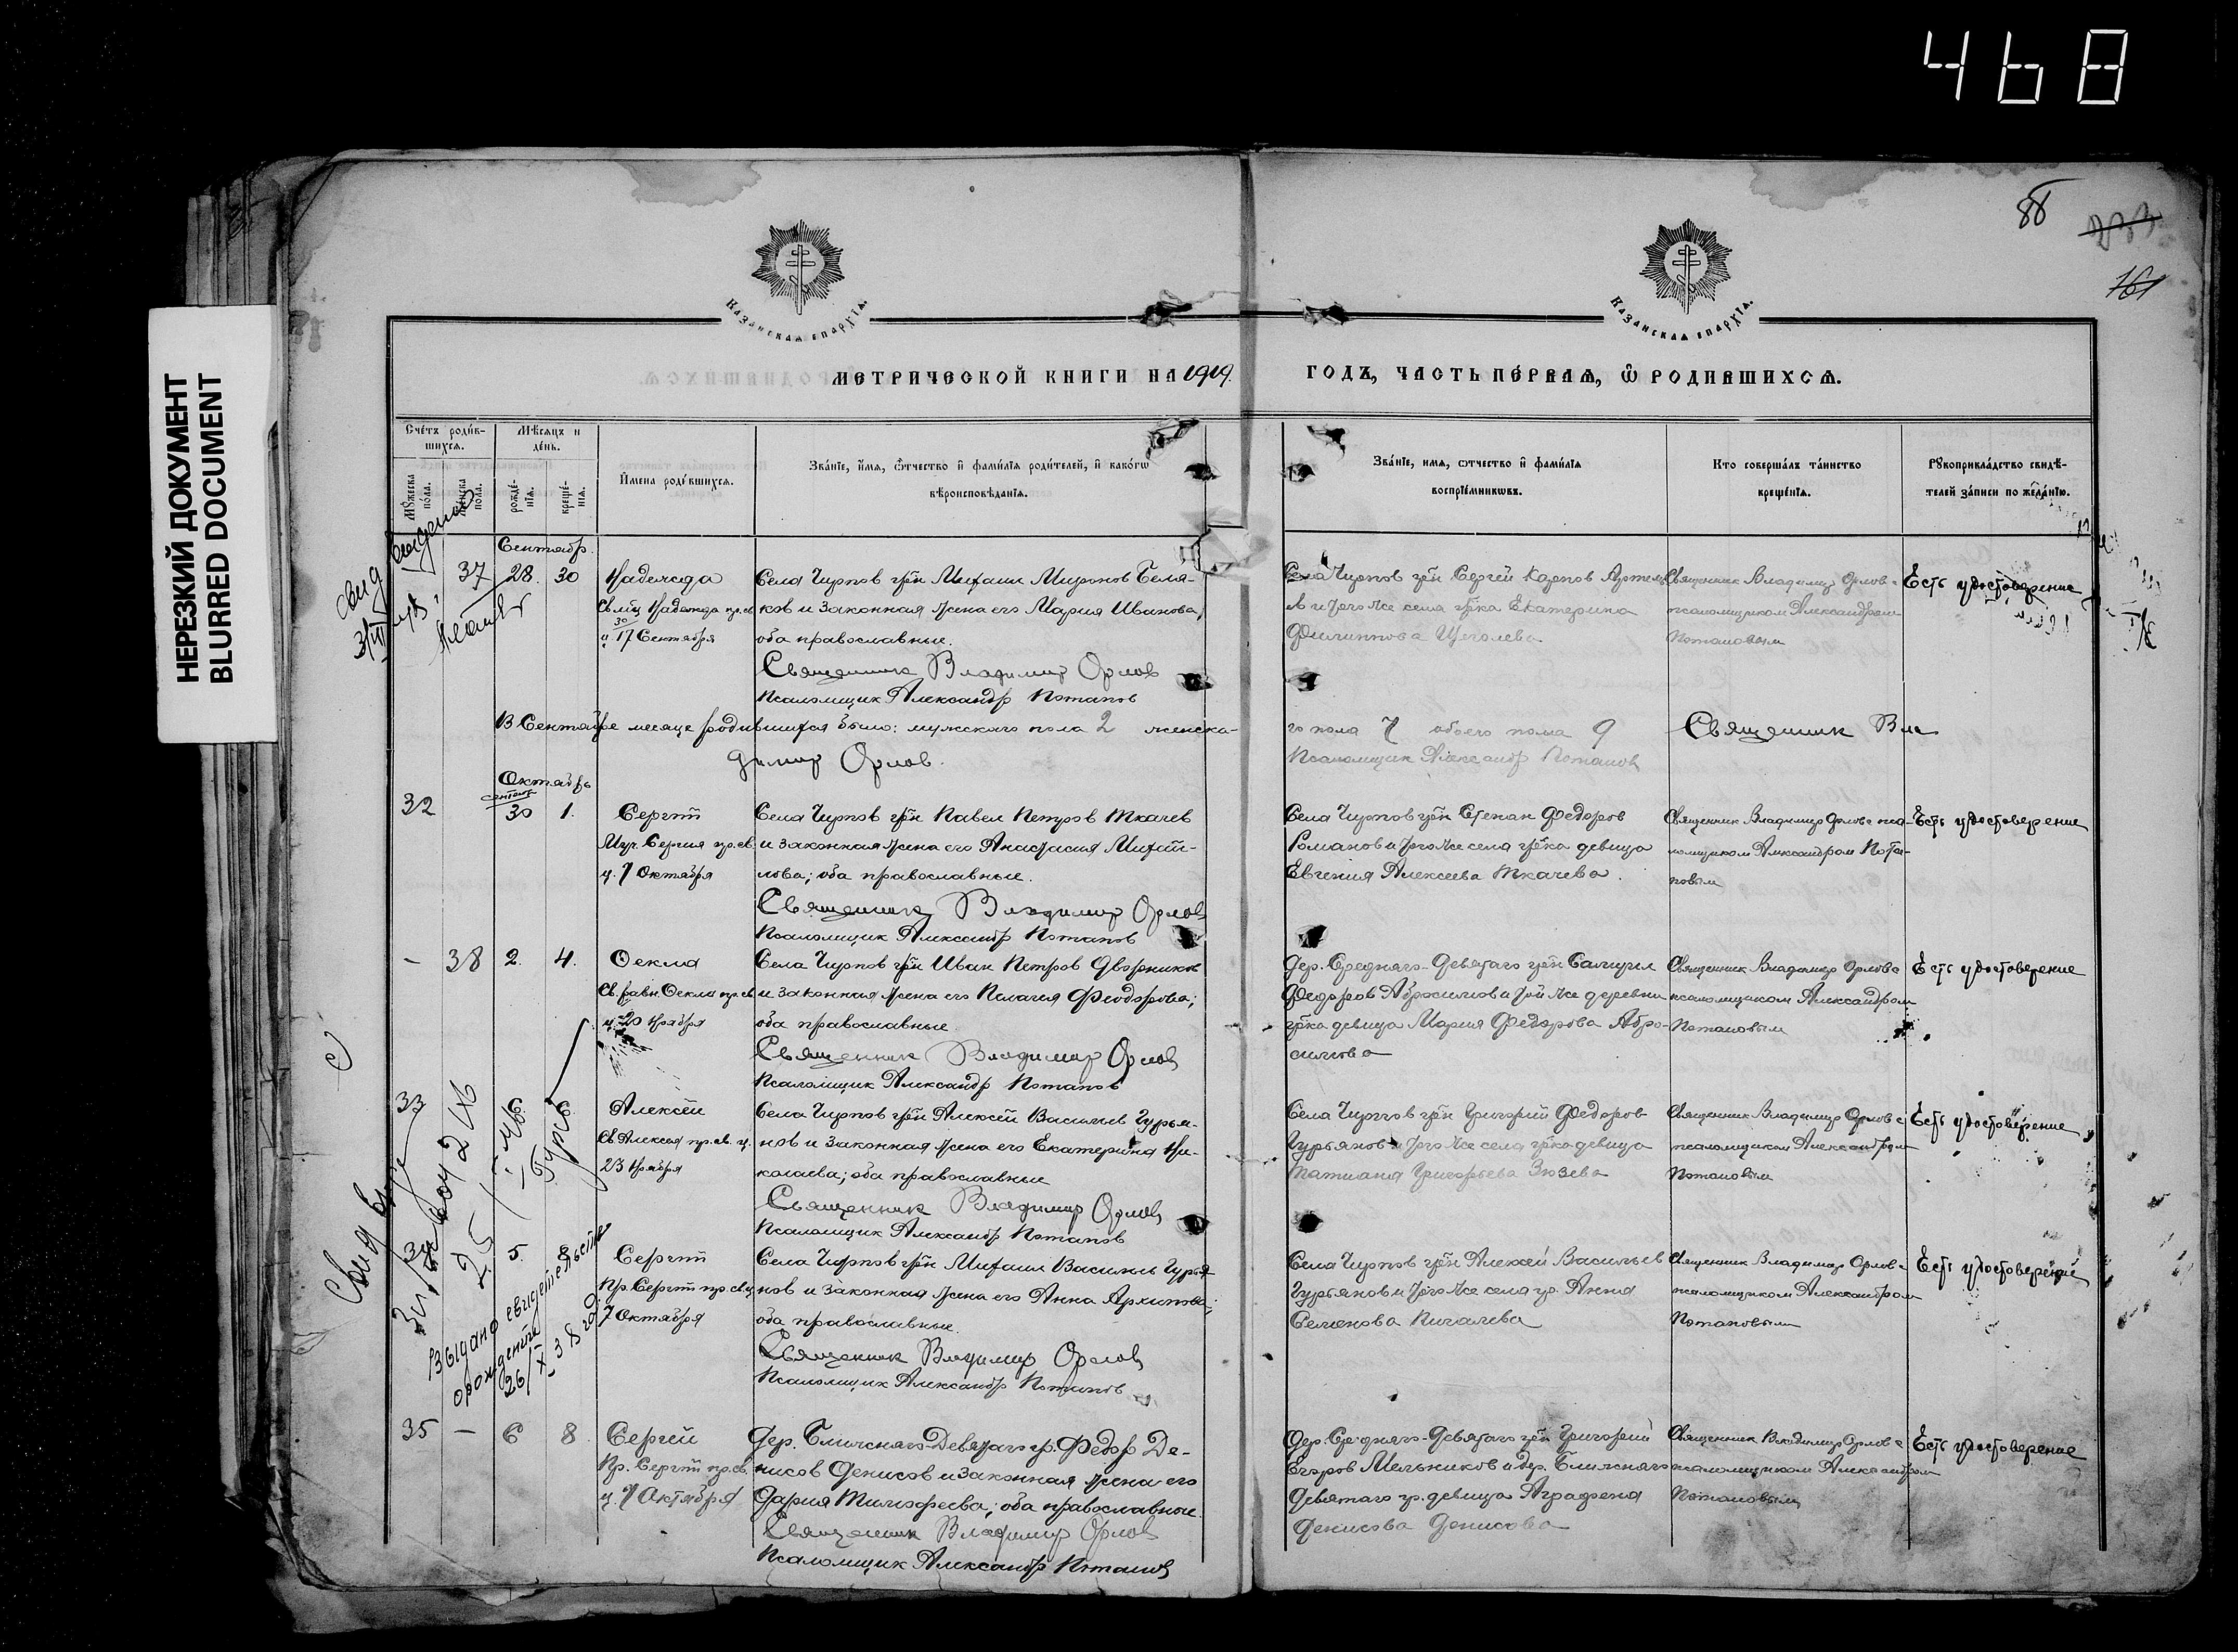 468
НЕРЕЗКИЙ ДОКУМЕНТ
BLURRED DOCUMENT
88
161
КАЗАНСКАЯ ЕПАРХІЯ.
КАЗАНСКАЯ ЕПАРХІЯ.
МЕТРИЧЕСКОЙ КНИГИ НА 1919 ГОДЪ, ЧАСТЬ ПЕ́РВАЯ, Ѡ РОДИВШИХСЯ.
Сче́тъ роди́в-
шихся.
Мѣсяцъ и
де́нь.
Мꙋ́жеска по́ла.
Же́нска по́ла.
рожде́-
нїѧ.
креще́-
нїѧ.
Имена роди́вшихся.
Зва́нїе, и́мѧ, ѻ́тчество и҆ фами́лїѧ роди́телей, и҆ како́гѡ
вѣроисповѣ́данїѧ.
Зва́нїе, имѧ, ѻтчество и҆ фами́лїѧ
воспрїе́мникѡвъ.
Кто соверша́лъ та́инство
креще́нїѧ.
Рꙋкоприкла́дство свидѣ́-
телей за́писи по жела́нїю.
Сентябр.
37 28. 30 Надежда
Св. мц. Надежда пр. св.
17 Сентября
Села Чирпов гр-н Михаил Миронов Беля-
ков и законная жена его Мария Иванова,
оба православные.
Священник Владимир Орлов
Псаломщик Александр Потапов
Села Чирпов гр-н Сергей Карпов Артемь
и того же села гр-ка Екатерина
Филиппова Щеголева
Священник Владимир Орлов с
псаломщиком Александром
Потаповым
Есть удостоверение
В Сентябре месяце родившихся было: мужского пола 2 женска-
го пола 7 обоего пола 9 Священник Вла
димир Орлов.
Псаломщик Александр Потапов
Октябрь
32 30 1. Сергий
Муч. Сергия пр. св.
ц. 7 Октября
Села Чирпов гр-н Павел Петров Ткачев
и законная жена его Анастасия Михай-
лова; оба православные.
Священник Владимир Орлов
Псаломщик Александр Потапов
Села Чирпов гр-н Степан Федоров
Романов и того же села гр-ка девица
Евгения Алексеева Ткачева.
Священник Владимир Орлов с пса-
ломщиком Александром Пота-
повым
Есть удостоверение
- 38 2. 4. Фекла
Св. равн. Фекла пр. св.
Села Чирпов гр-н Иван Петров Дворников
и законная жена его Пелагия Феодорова;
оба православные.
Священник Владимир Орлов
Псаломщик Александр Потапов
Дер. Средняго-Девятаго гр-н
Федоров Абросимов и той же деревни
гр-ка девица Мария Федорова Абро-
симова
Священник Владимир Орлов с
псаломщиком Александром
Потаповым
Есть удостоверение
33 Алексей
Св. Алексея пр. св. ц.
23 Ноября
Села Чирпов гр-н Алексей Васильев Гурья-
нов и законная жена его Екатерина Ни-
колаева; оба православные
Священник Владимир Орлов
Псаломщик Александр Потапов
Села Чирпов гр-н Григорий Федоров
Гурьянов и того же села гр-ка девица
Татиана Григорьева Зюзева
Священник Владимир Орлов с
псаломщиком Александром
Потаповым
Есть удостоверение
34 5. 8 Сергий
Пр. Сергий пр. св. ц.
7 Октября
Села Чирпов гр-н Михаил Васильев Гурья-
нов и законная жена его Анна Архипова;
оба православные.
Священник Владимир Орлов
Псаломщик Александр Потапов
Села Чирпов гр-н Алексей Васильев
Гурьянов и того же села гр. Анна
Семенова Пичалева
Священник Владимир Орлов с
псаломщиком Александром
Потаповым
Есть удостоверение
Выдано свидетельство
о рождении
26/X-38 год.
35 – 6 8 Сергей
Пр. Сергий пр. св.
ц. 7 Октября
Дер. Ближняго-Девятаго гр. Федор Де-
нисов Денисов и законная жена его
Дария Тимофеева; оба православные.
Священник Владимир Орлов
Псаломщик Александр Потапов
Дер. Средняго-Девятаго гр-н Григорий
Егоров Мельников и дер. Ближняго
Девятаго гр. девица Аграфена
Денисова Денисова
Священник Владимир Орлов с
псаломщиком Александром
Потаповым
Есть удостоверение